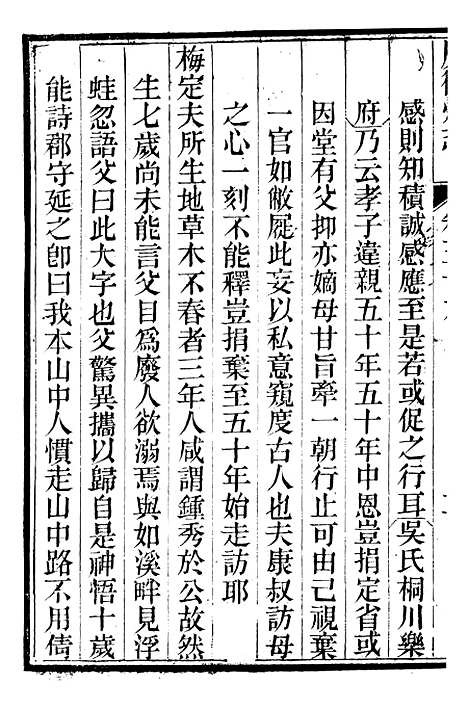 感則知積誠感應至是若或促之行耳吳氏桐川樂
府乃云孝子違親五十年五十年中恩豈捐定省或
因堂有父抑亦嫡母甘旨牽一朝行止可由己視棄
一官如敝屣此妄以私意窺度古人也夫康叔訪母
之心一刻不能釋豈捐棄至五十年始走訪耶
梅定夫所生地草木不春者三年人咸謂鍾秀於公故然
生七歲尚未能言父目為廢人欲溺焉與如溪畔見浮
蛙忽語父曰此大字也父驚異攜以歸自是神悟十歲
能詩郡守延之卽曰我本山中人慣走山中路不用倩